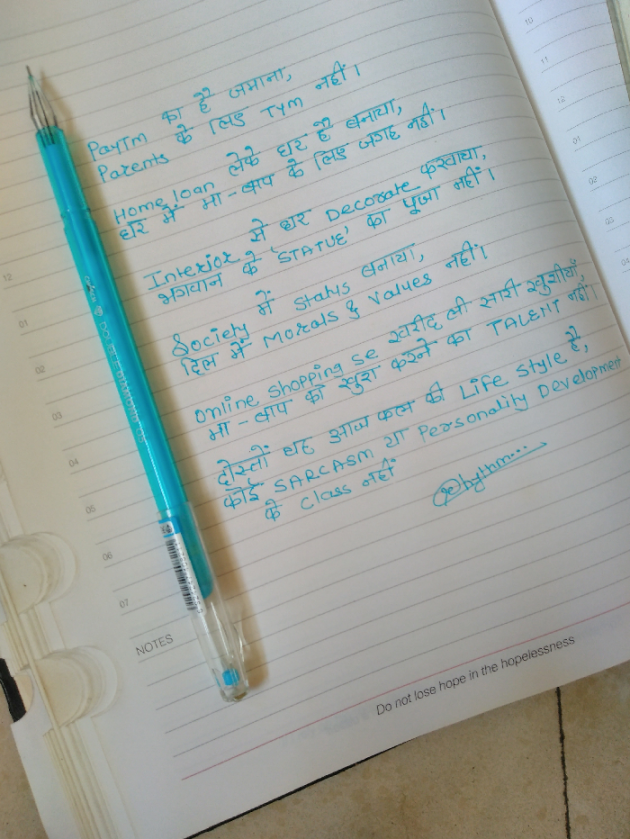 Paytm का है जमाना,
Parents के लिए Tym नहीं।
Home loan लेके घर है बनाया,
घर में मा-बाप के लिए जगह नहीं।
Interior से घर Decorate करवाया,
भगवान के 'STATUE' का पूजा नहीं।
Society में Status बनाया,
दिल में Morals & Values नहीं।
Online shopping se खरीद ली सारी खुशीयाँ,
मा-बाप को खुश करने का TALENT नहीं।
दोस्तों यह आज कल की Life style है,
कोई SARCASM या Personality Development
के class नहीं
Rhythm...
12
01
02
03
04
05
06
07
NOTES
Do not lose hope in the hopelessness
10
11
12
01
02
03